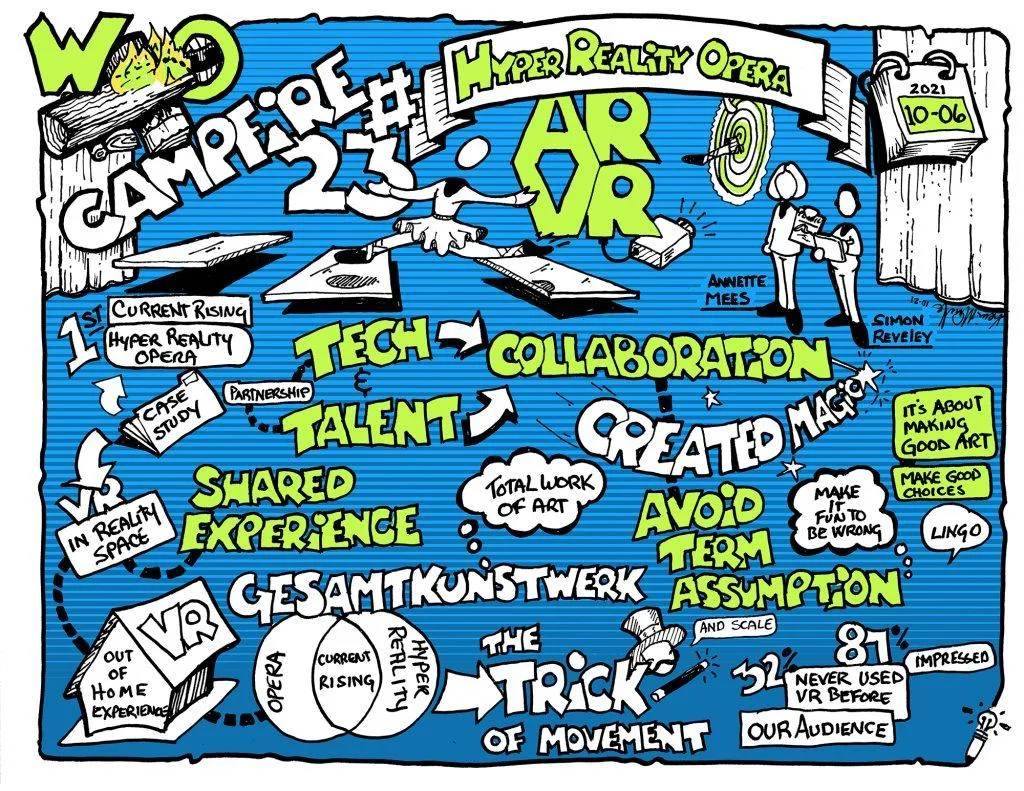 WOO
CAMPFIRE
23#
HYPER REALITY OPERA
AR
VR
2021
10-06
ANNETTE
MEES
SIMON
REVELEY
10-21
1ST
CURRENT RISING
HYPER REALITY
OPERA
CASE
STUDY
PARTNERSHIP
TECH
&
TALENT
COLLABORATION
CREATED MAGIC
IT'S ABOUT
MAKING
GOOD ART
MAKE GOOD
CHOICES
LINGO
VR
IN REALITY
SPACE
SHARED
EXPERIENCE
TOTAL WORK
OF ART
AVOID
TERM
ASSUMPTION
MAKE
IT
FUN TO
BE WRONG
GESAMTKUNSTWERK
VR
OUT
OF
HOME
EXPERIENCE
OPERA
CURRENT
RISING
HYPER
REALITY
THE
TRICK
OF MOVEMENT
AND SCALE
32%
NEVER USED
VR BEFORE
87%
IMPRESSED
OUR AUDIENCE